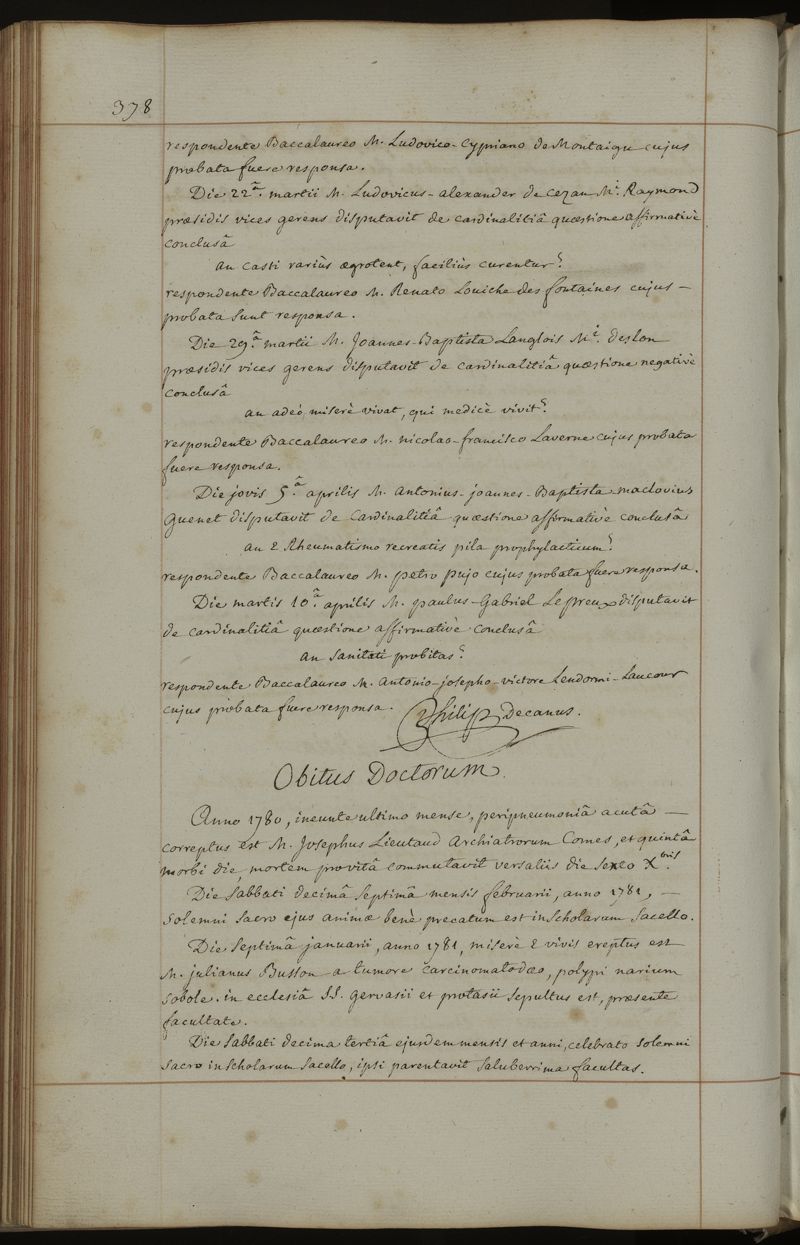 378
respondente Baccalaureo M. Ludovico-Cypriano de Montaigu cujus
probata fuere responsa.
Die 22.â martii M. Ludovicus-alexander de Cezan M.i Raymond
præsidis vices gerens disputavit de cardinalitiâ quæstione affirmativè
conclusâ
an casti rariùs ægrotent, faciliùs curentur?
respondente Baccalaureo M. Renato Louiche des fontaines cujus –
probata sunt responsa.
Die 29.â martii M. Joannes-Baptista Langlois M.i deslon
præsidis vices gerens disputavit de cardinalitiâ quæstione negativè
conclusâ
an adeò miserè vivat, qui medicè vivit?
respondente Baccalaureo M. nicolao-francisco Laverne cujus probata
fuere responsa.
Die jovis 5.â aprilis M. antonius-joannes-Baptista maclovius
Guenet disputavit de Cardinalitiâ quæstione affirmativè conclusâ
an è Rheumatismo recreatis pila prophylacticum?
respondente Baccalaureo M. petro pujo cujus probata fuere responsa.
Die martis 10.â aprilis M. paulus-Gabriel Le preux disputavit
de cardinalitiâ quæstione affirmativè conclusâ
an Sanitati probitas?
respondente Baccalaureo M. Antonio-josepho-victore Lendormi-Laucour
cujus probata fuere responsa. Philip Decanus.
Obitus Doctorum.
Anno 1780, ineunte ultimo mense, peripneumoniâ acutâ —
correptus est M. Josephus Lieutaud Archiatrorum Comes, et quintâ
morbi die, mortem pro vitâ commutavit versaliis die Sexto X.bris
Die Sabbati decimâ Septimâ mensis februarii, anno 1781, —
Solemni Sacro ejus animæ benè precatum est in Scholarum Sacello.
Die Septimâ januarii, anno 1781, miserè è vivis ereptus est
M. julianus Busson a tumore carcinomatodæo, polypi narium
Sobole. in ecclesiâ SS. gervasii et protasii Sepultus est, præsente
facultate.
Die Sabbati decima tertiâ ejusdem mensis et anni, celebrato Solemni
Sacro in Scholarum Sacello, ipsi parentavit Saluberrima facultas.